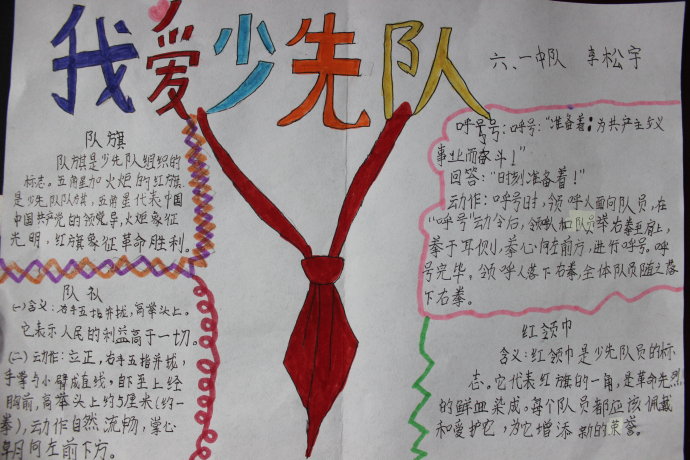 我爱少先队
六、一中队 李松宇
队旗
队旗是少先队组织的
标志。五角星加火炬的红旗
是少先队队旗，五角星代表中国
中国共产党的领党导，火炬象征
光明，红旗象征革命胜利。
队礼
(一)含义：右手五指并拢，高举头上。
它表示人民的利益高于一切。
(二)动作：立正，右手五指并拢，
手掌与小臂成直线，自下至上经
胸前，高举头上约5厘米(约一
拳)，动作自然流畅，掌心
向左前下方。
呼号号：呼号："准备着：为共产主义
事业而奋斗！"
回答："时刻准备着！"
动作：呼号时，领呼人面向队员，在
"呼号"动令后，领呼人和队员举右拳至肩上，
拳于耳侧，拳心向左前方，进行呼号。呼
号完毕。领呼人落下右拳，全体队员随之落
下右拳。
红领巾
含义：红领巾是少先队员的标
志。它代表红旗的一角，是革命先烈
的鲜血染成。每个队员都应该佩戴
和爱护它，为它增添新的荣誉。